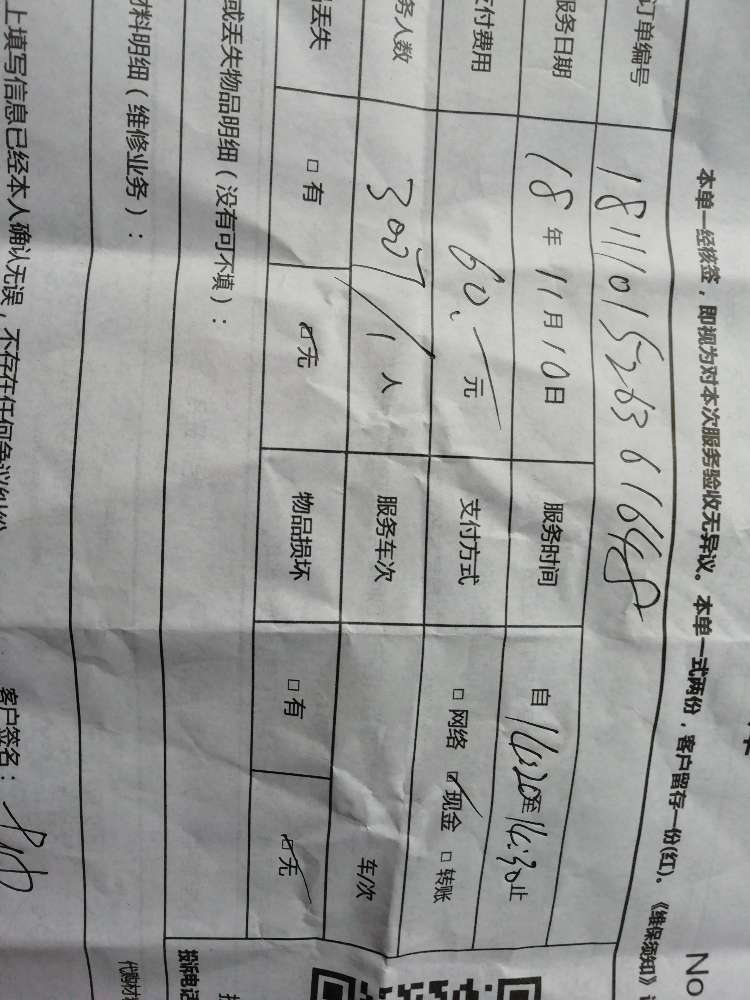 No
本单一经核签，即视为对本次服务验收无异议。本单一式两份，客户留存一份(红)。《维保须知》
订单编号 1811101526361648
服务日期 18年11月10日 服务时间 自14:20至14:30止
支付费用 60.元 支付方式 □网络 ☑现金 □转账
务人数 1人 服务车次 车次
丢失 □有 ☑无 物品损坏 □有 ☑无
或丢失物品明细（没有可不填）：
材料明细（维修业务）：
上填写信息已经本人确认无误，不存在任何争议纠纷
客户签名：
投诉电记
代购材